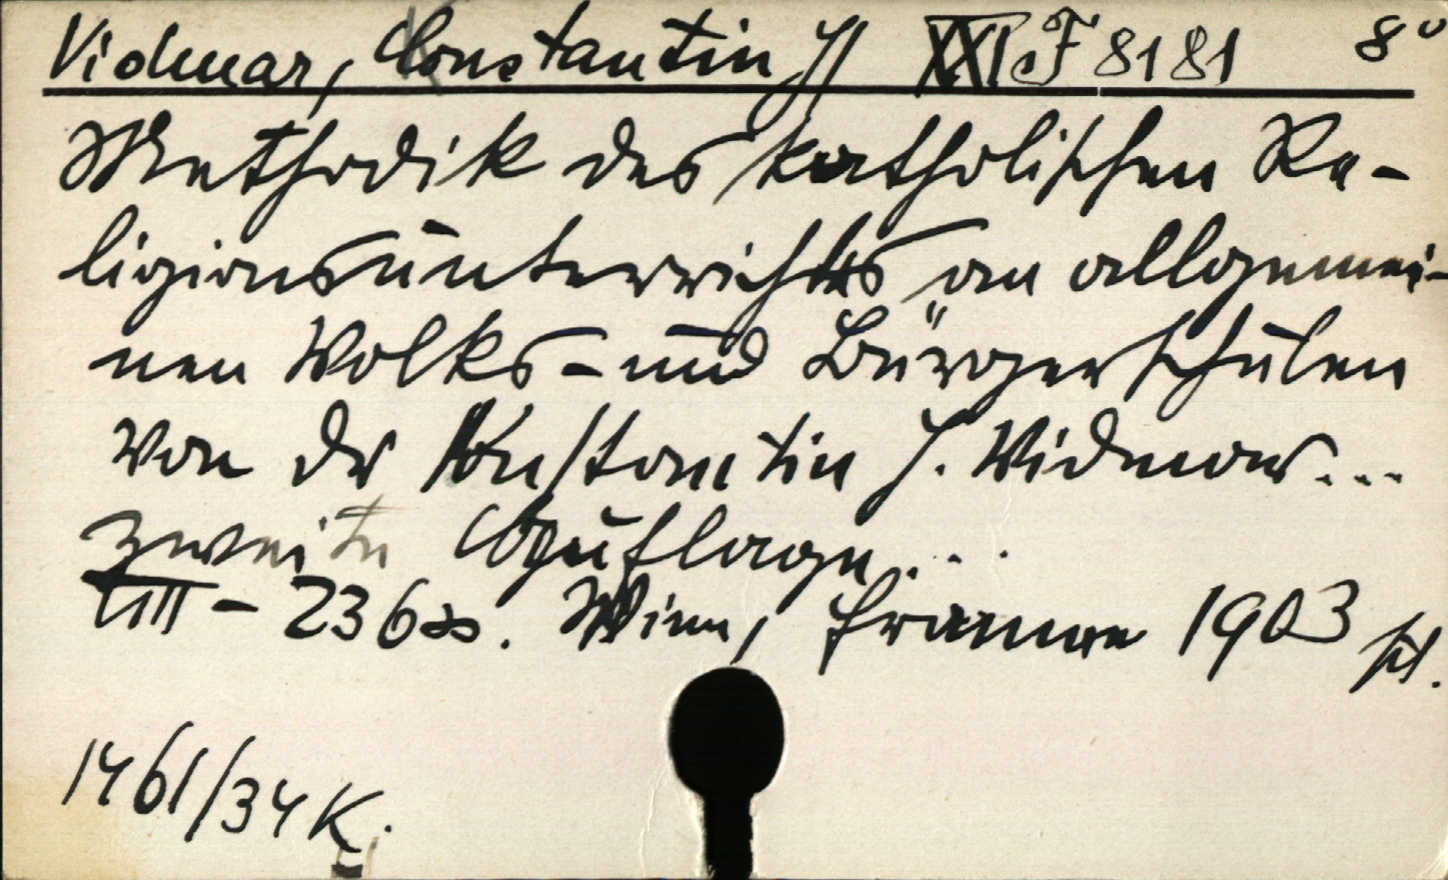 Vidmar, Constantin J XXI F 8181 8°
Methodik des katholischen Re-
ligionsunterrichts an allgemei-
nen Volks- und Bürgerschulen
von Dr Konstantin J. Vidmar...
zweite Auflage...
VIII - 236 S. Wien, Fromme 1903
1461/34 K.